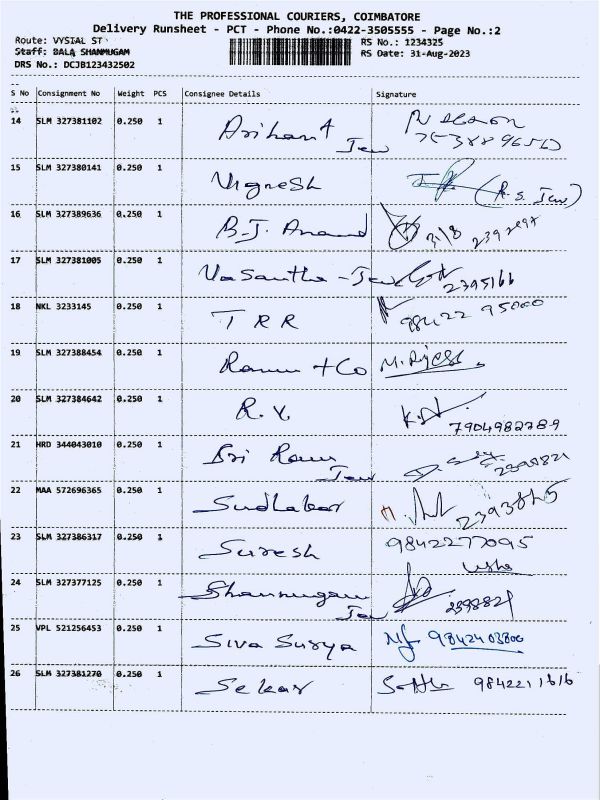 THE PROFESSIONAL COURIERS, COIMBATORE
Delivery Runsheet - PCT - Phone No.:0422-3505555 - Page No.:2
Route: VYSIAL ST
RS No.: 1234325
Staff: BALA SHANMUGAM
RS Date: 31-Aug-2023
DRS No.: DCJB123432502
S No Consignment No Weight PCS Consignee Details Signature
14 SLM 327381102 0.250 1 Arihant
Jew
15 SLM 327380141 0.250 1 Vignesh (R.S. Jew)
16 SLM 327389636 0.250 1 B.J. Anand 31/8
17 SLM 327381005 0.250 1 Vasantha - Jew 2395166
18 NKL 3233145 0.250 1 T R R 98422 95000
19 SLM 327388454 0.250 1 Ramu + Co
20 SLM 327384642 0.250 1 R.V.
7904982289
21 HRD 344043010 0.250 1 Sri Ram
Jew
22 MAA 572696365 0.250 1 Sudhakar
23 SLM 327386317 0.250 1 Suresh 9842277095
Usha
24 SLM 327377125 0.250 1 Shanmugam
Jew
25 VPL 521256453 0.250 1 Siva Surya 9842403800
26 SLM 327381270 0.250 1 Sekar 9842211616